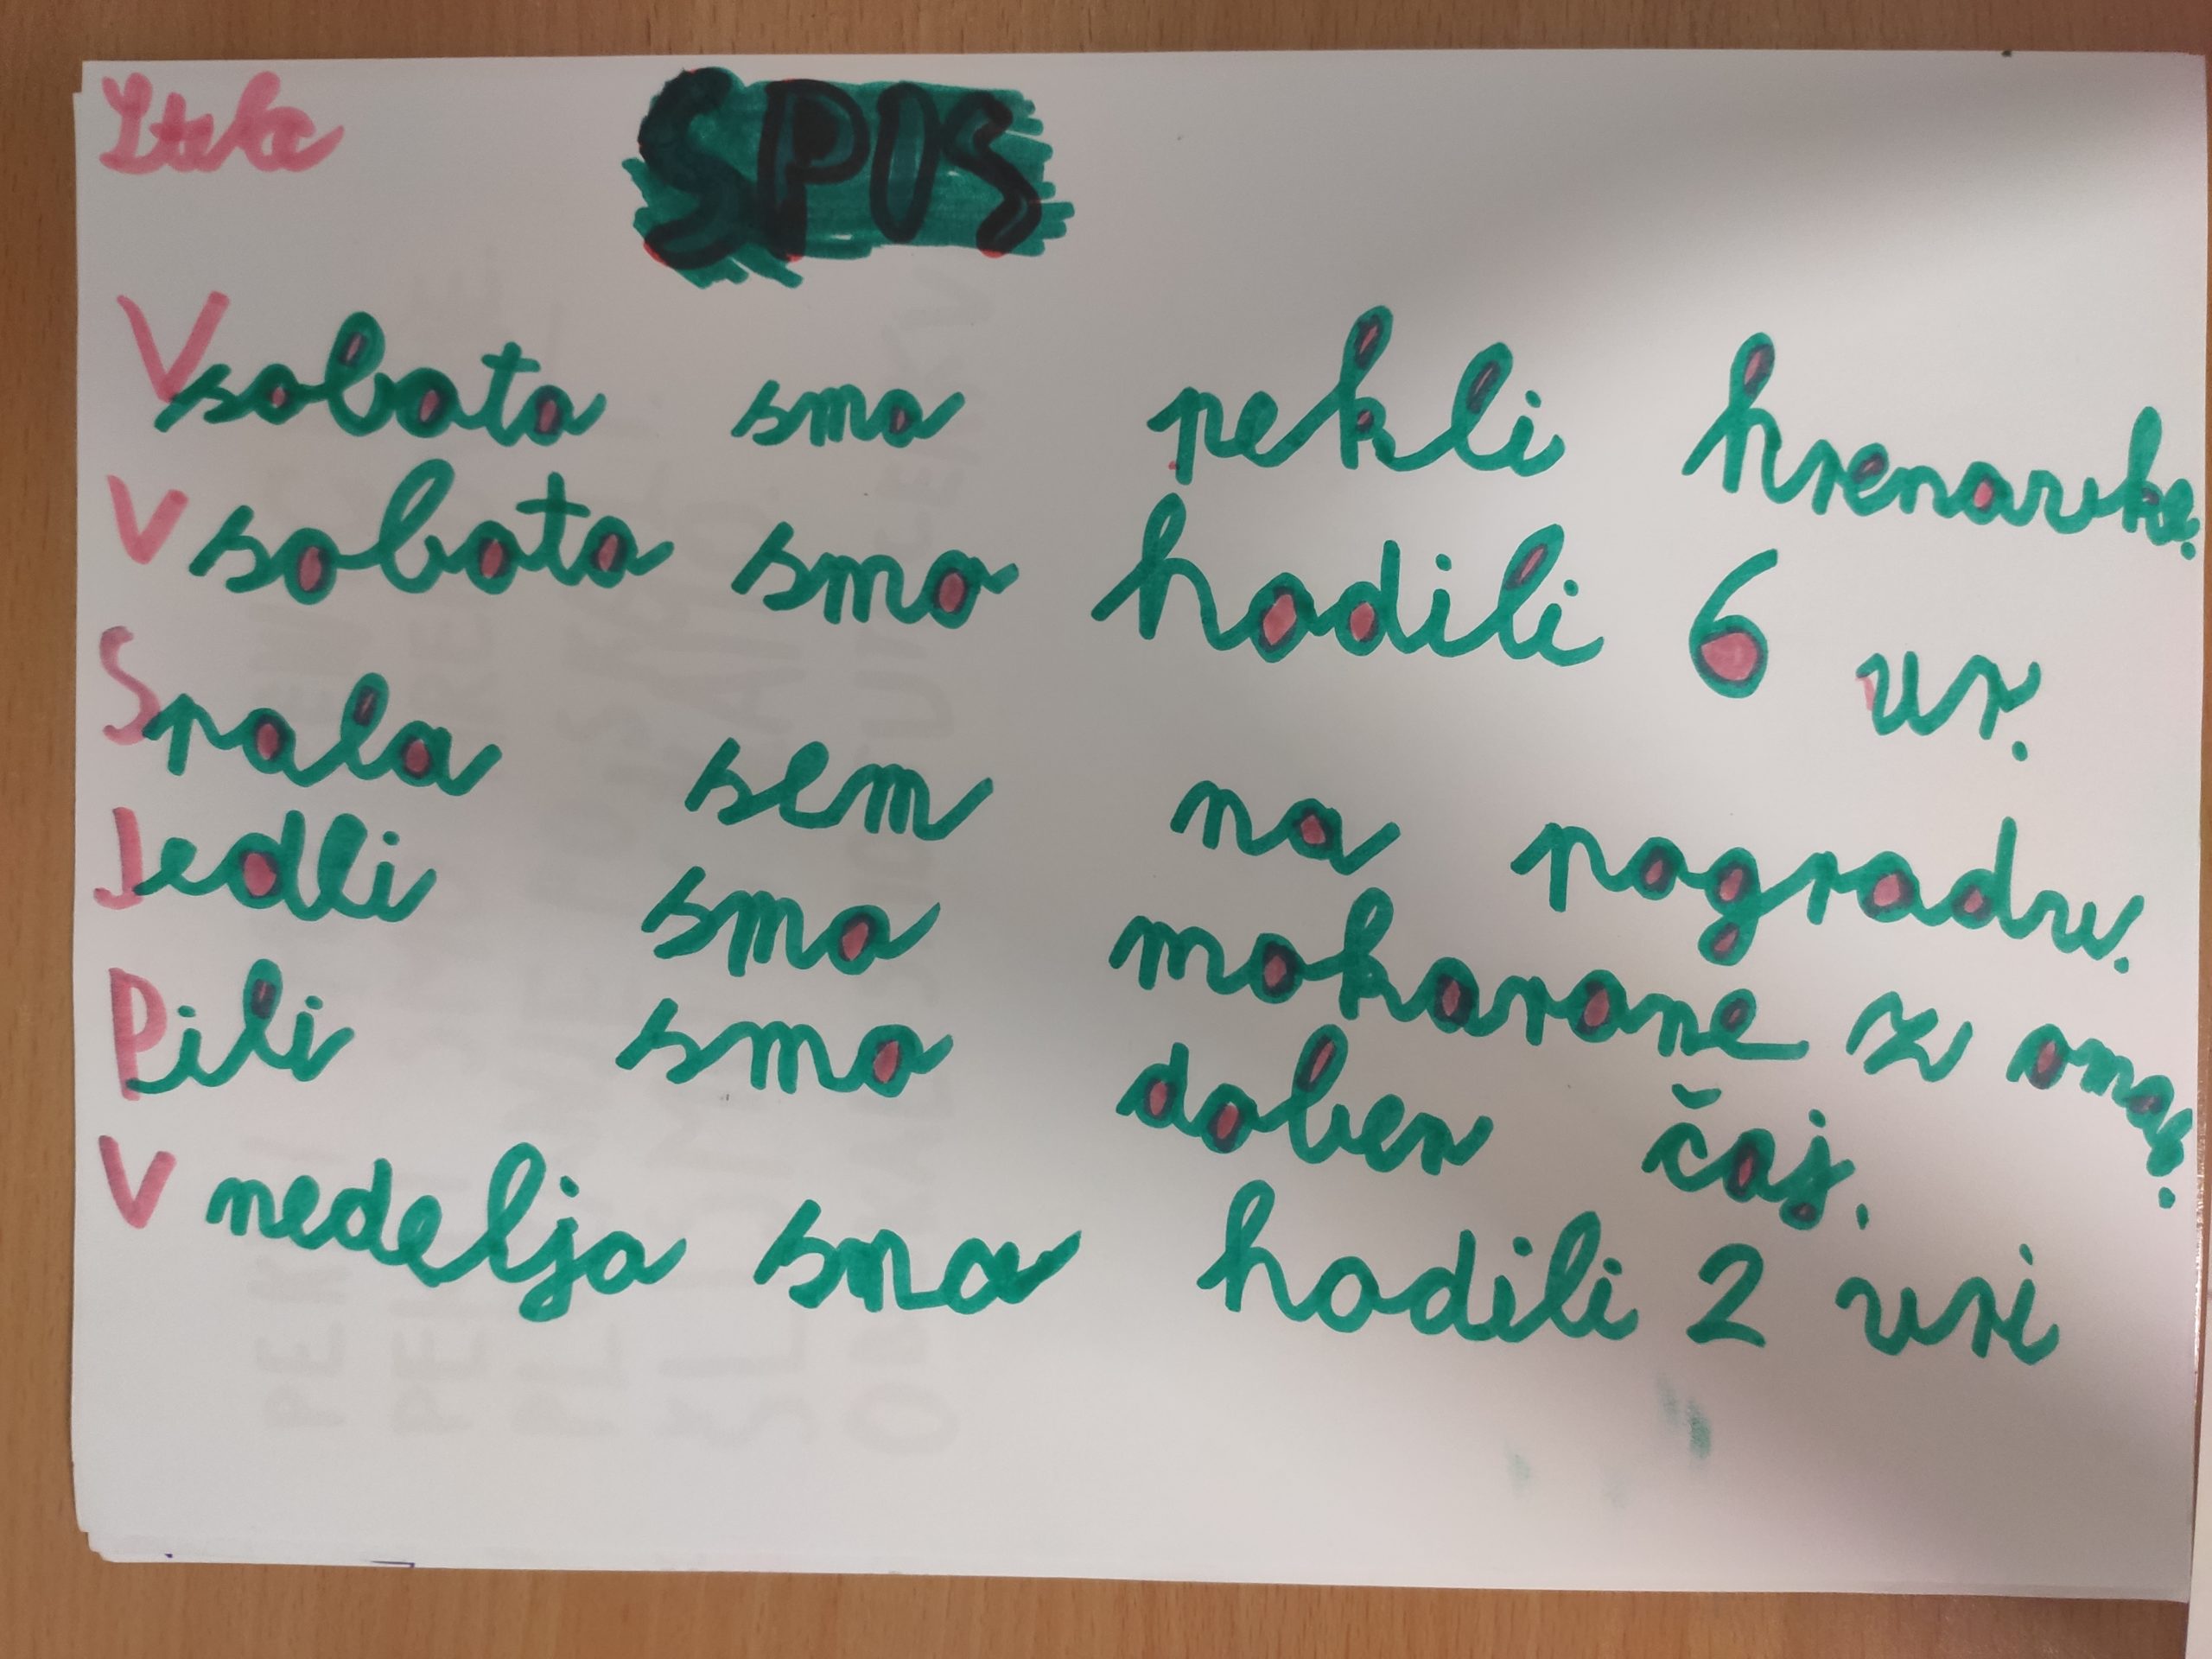 SPIS
V soboto smo pekli hrenovke.
V soboto smo hodili 6 ur.
Spala sem na pogradu.
Jedli smo makarone z omas.
Pili smo dober čaj.
V nedeljo smo hodili 2 uri